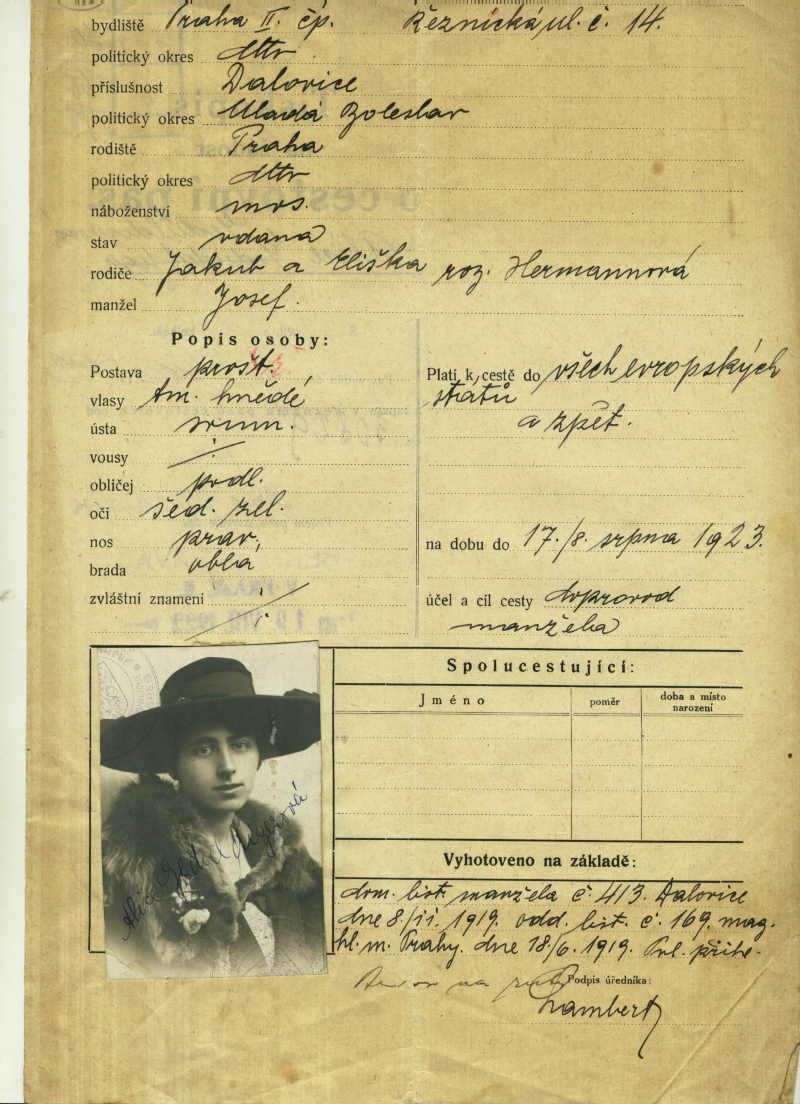 bydliště Praha II. čp. Řeznická ul. č. 14.
politický okres dtto
příslušnost Dalovice
politický okres Mladá Boleslav
rodiště Praha
politický okres dtto
náboženství mos.
stav vdaná
rodiče Jakub a Eliška roz. Hermannová
manžel Josef.
Popis osoby:
Postava prostř.
vlasy tm. hnědé
ústa soum.
vousy /.
obličej podl.
oči šed. zel.
nos prav.
brada oblá
zvláštní znamení /.
Platí k cestě do všech evropských
států
a zpět.
na dobu do 17./8. srpna 1923.
účel a cíl cesty doprovod
manžela
Spolucestující:
Jméno poměr doba a místo
narození
Vyhotoveno na základě:
dom. list. manžela č. 413. Dalovice
dne 8./11. 1919. odd. list. č. 169. mag.
hl. m. Prahy. dne 18/6. 1919. Pol. přihl.
Podpis úředníka:
Lambert